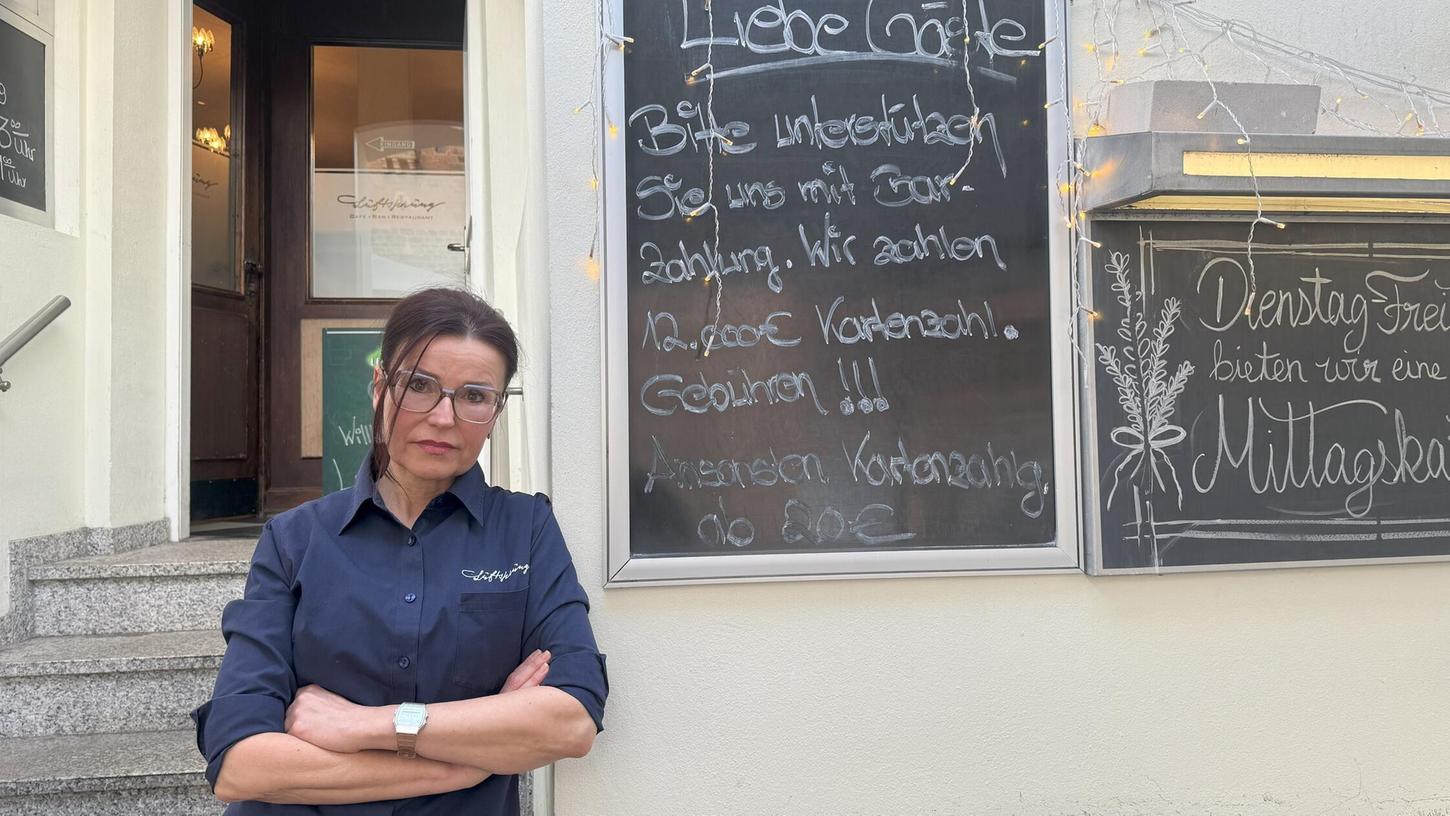 Uhr
Uhr
EINGANG
Luftsprung
CAFE • BAR • RESTAURANT
Will
Luftsprung
Liebe Gäste
Bitte unterstützen
Sie uns mit Bar-
zahlung. Wir zahlen
12.000€ Kartenzahl.
Gebühren !!!
Ansonsten Kartenzahlg.
ab 20€
Dienstag-Frei
bieten wir eine
Mittagska